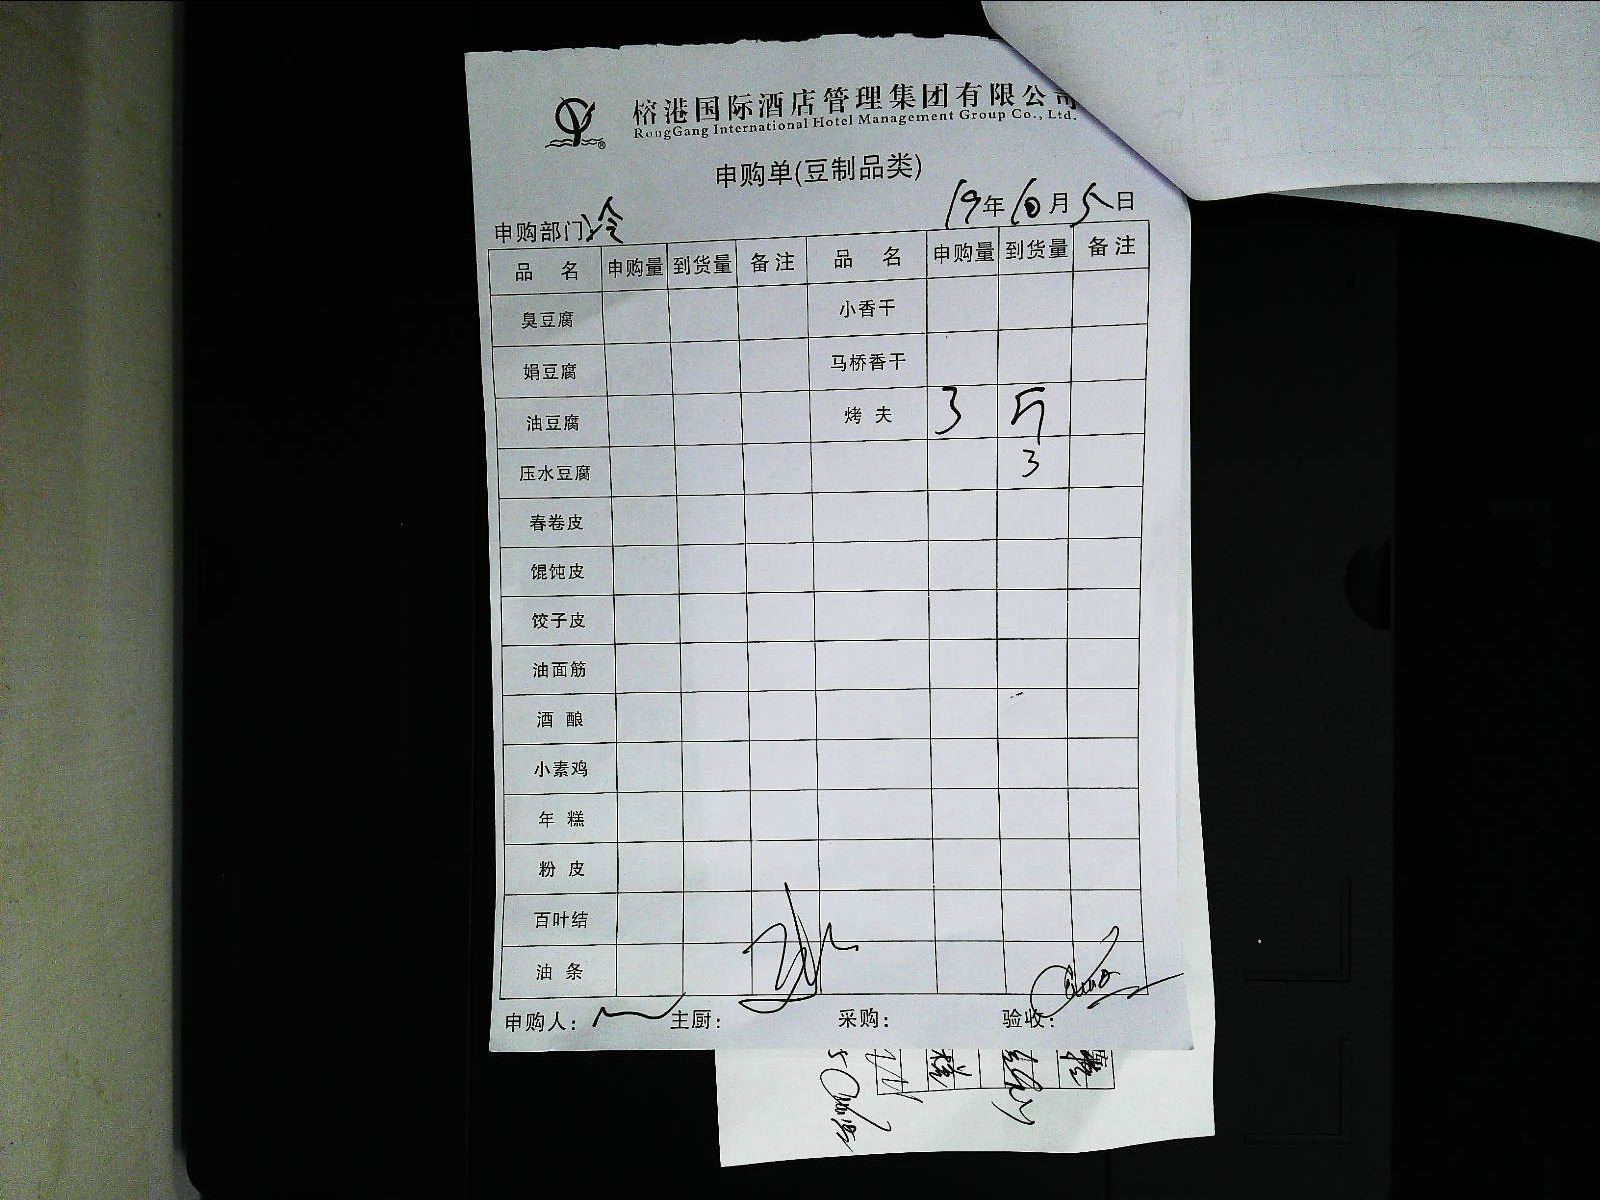 榕港国际酒店管理集团有限公司
RongGang International Hotel Management Group Co., Ltd.
申购单(豆制品类)
申购部门 冷 19年10月5日
品 名 申购量 到货量 备注 品 名 申购量 到货量 备注
臭豆腐 小香干
娟豆腐 马桥香干
油豆腐 烤 夫 3 斤
压水豆腐 3
春卷皮
馄饨皮
饺子皮
油面筋
酒 酿
小素鸡
年 糕
粉 皮
百叶结
油 条
申购人: 主厨: 采购: 验收: